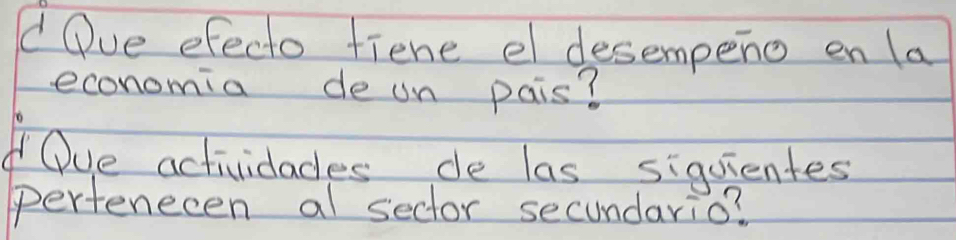 ¿Que efecto tiene el desempeño en la
economia de un pais?
¿Que actividades de las siguientes
pertenecen al sector secundario?